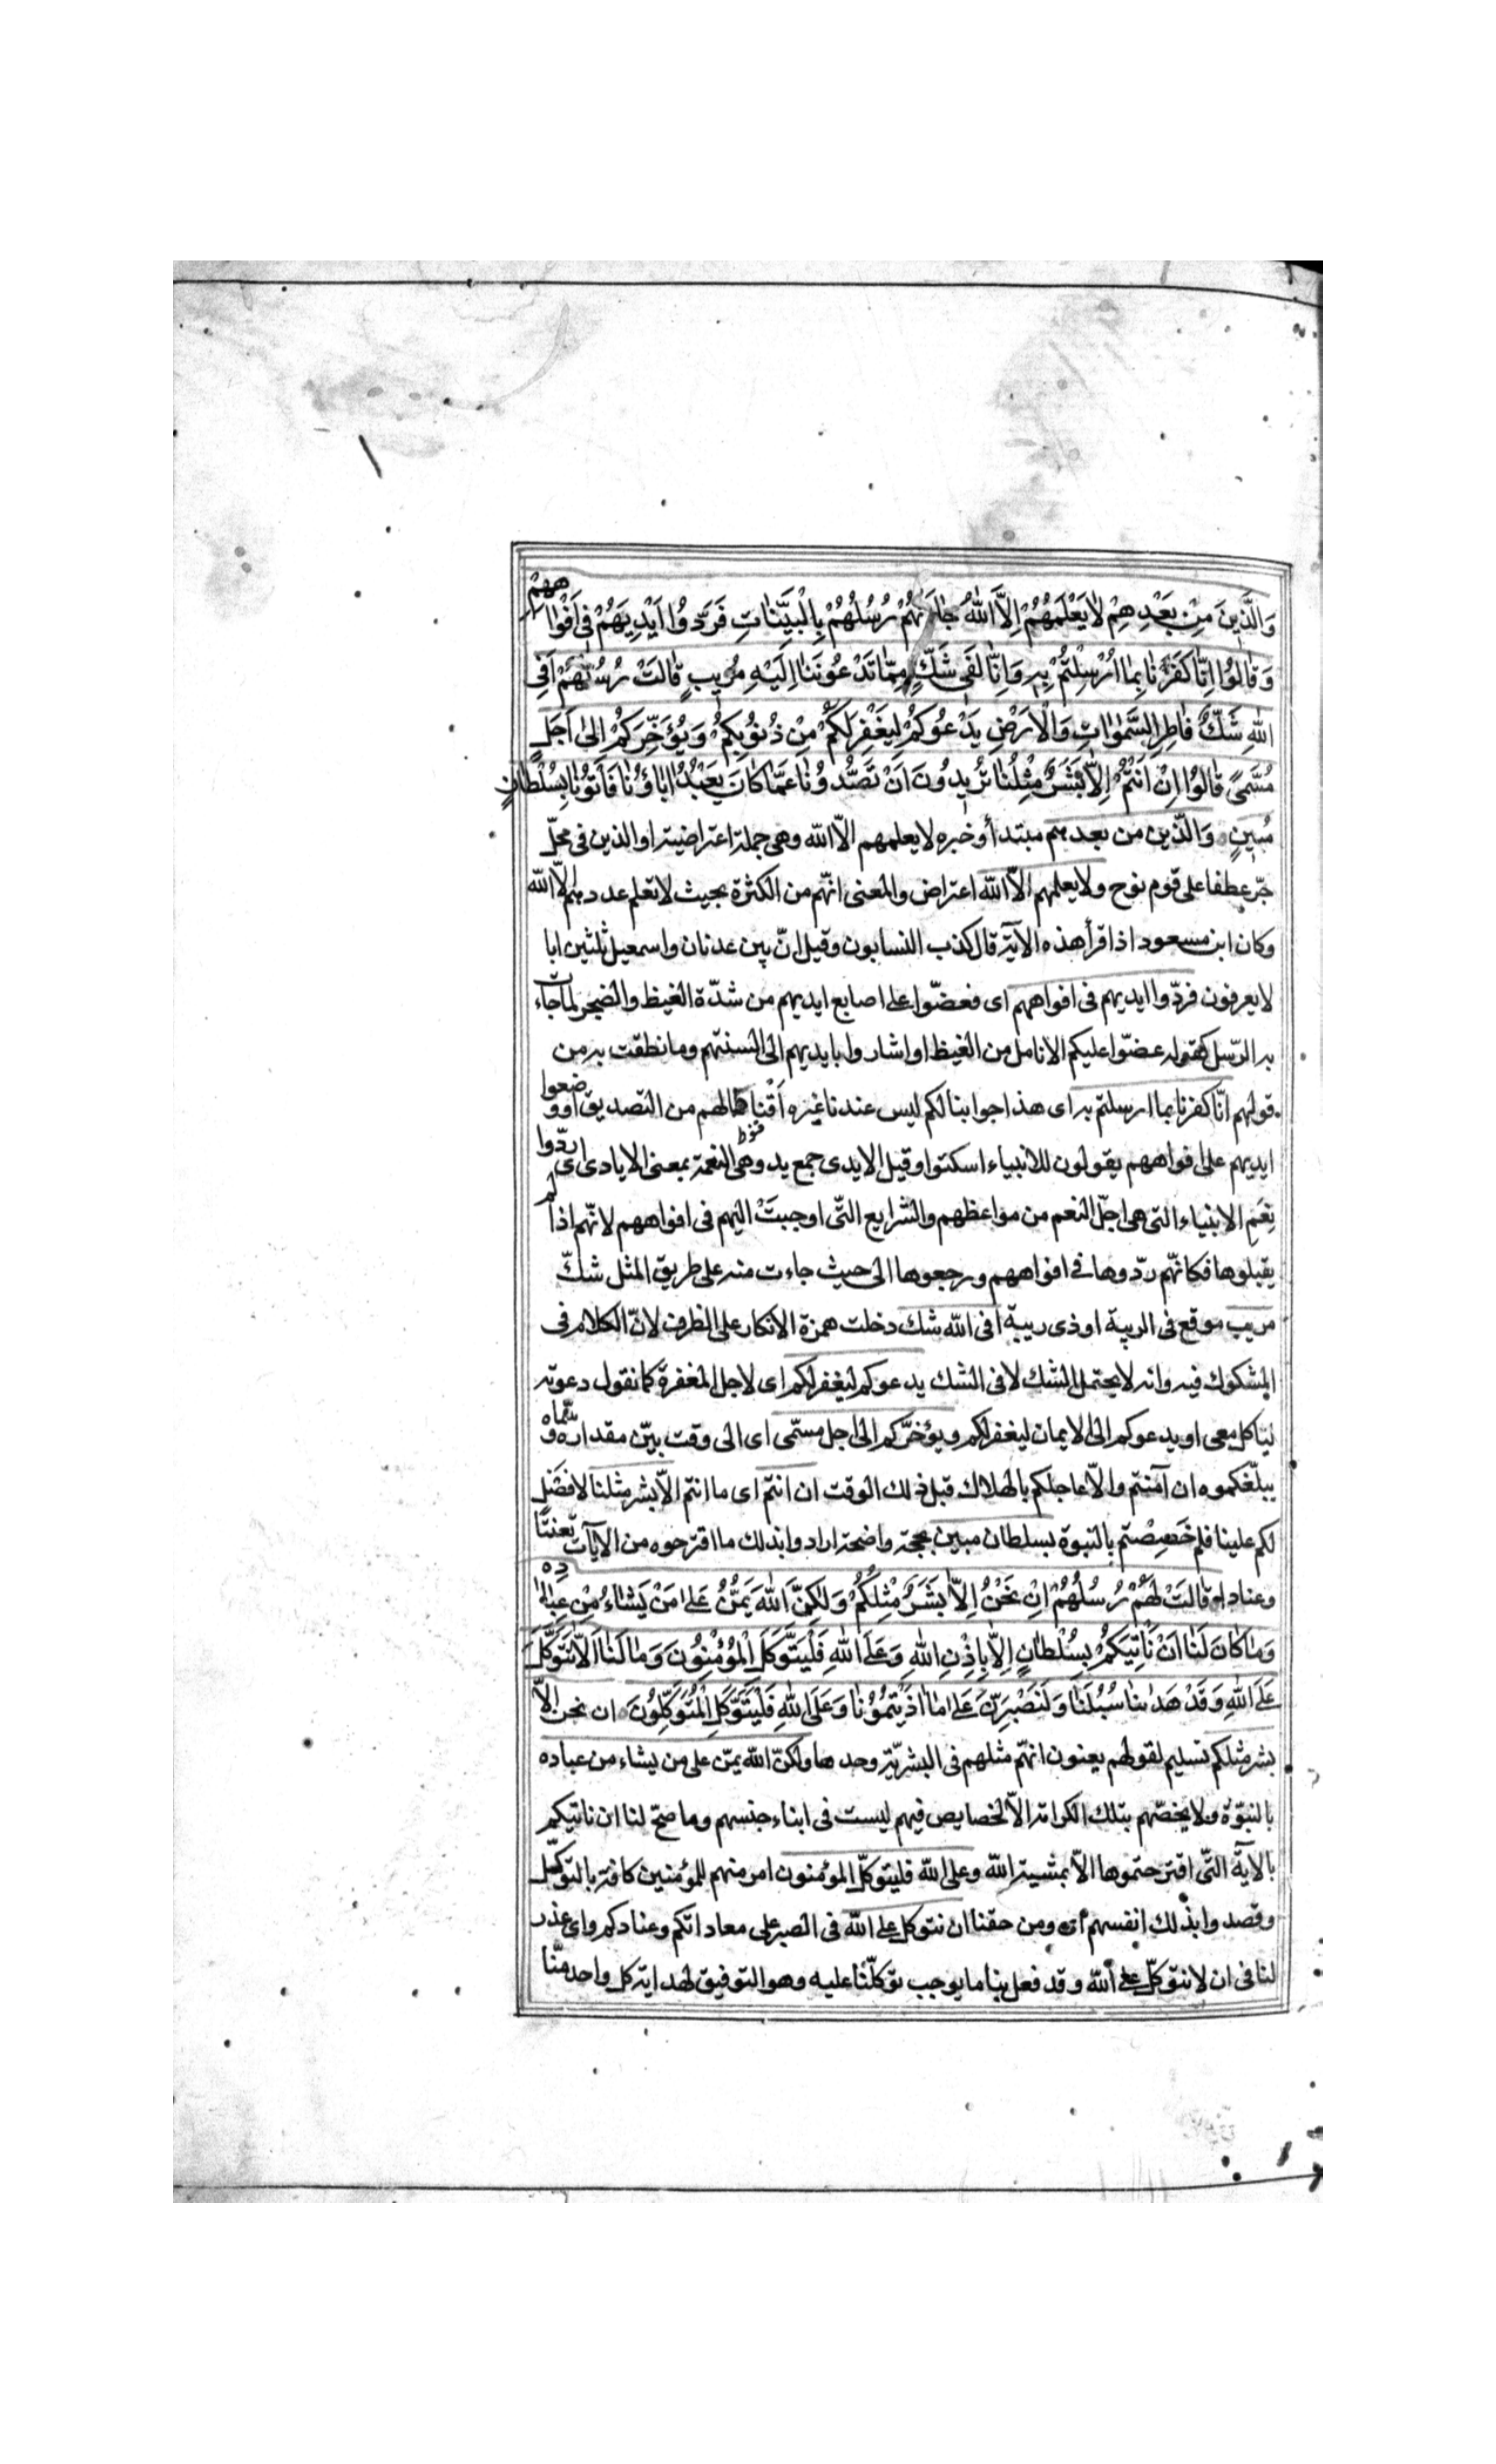 وَالَّذِينَ مِنْ بَعْدِهِمْ لَا يَعْلَمُهُمْ اِلَّا اللّٰهُ جَاءَتْهُمْ رُسُلُهُمْ بِالْبَيِّنَاتِ فَرَدُّوا اَيْدِيَهُمْ فِي اَفْوَاهِهِمْ
وَقَالُوا اِنَّا كَفَرْنَا بِمَا اُرْسِلْتُمْ بِهِ وَاِنَّا لَفِي شَكٍّ مِمَّا تَدْعُونَنَا اِلَيْهِ مُرِيبٍ قَالَتْ رُسُلُهُمْ اَفِي
اللّٰهِ شَكٌّ فَاطِرِ السَّمٰوَاتِ وَالْاَرْضِ يَدْعُوكُمْ لِيَغْفِرَ لَكُمْ مِنْ ذُنُوبِكُمْ وَيُؤَخِّرَكُمْ اِلٰى اَجَلٍ
مُسَمًّى قَالُوا اِنْ اَنْتُمْ اِلَّا بَشَرٌ مِثْلُنَا تُرِيدُونَ اَنْ تَصُدُّونَا عَمَّا كَانَ يَعْبُدُ اٰبَاؤُنَا فَأْتُونَا بِسُلْطَانٍ
مُبِينٍ وَالّذين من بعدهم مبتدأ وخبره لا يعلمهم الّا اللّه وهى جملة اعتراضية او الذين فى محلّ
جرّ عطفا على قوم نوح ولا يعلمهم الّا اللّه اعتراض والمعنى انّهم من الكثرة بحيث لا تعلم عددهم الّا اللّه
وكان ابن مسعود اذا قرأ هذه الآية قال كذب النسابون وقيل انّ بين عدنان واسمعيل ثلثين ابا
لا يعرفون فردّوا ايديهم فى افواههم اى فعضّوا على اصابع ايديهم من شدّة الغيظ والضجر لما جاءت
به الرّسل كقوله عضّوا عليكم الانامل من الغيظ او اشاروا بايديهم الى السنتهم وما نطقت به من
قولهم انّا كفرنا بما ارسلتم به اى هذا جوابنا لكم ليس عندنا غيره اقناطا لهم من التصديق او وضعوا
ايديهم على افواههم يقولون للانبياء اسكتوا وقيل الايدى جمع يد وهى النعمة بمعنى الايادى اى ردّوا
نِعَمَ الانبياء التى هى اجلّ النعم من مواعظهم والشّرايع التّى اوحيت اليهم فى افواههم لانّهم اذا لم
يقبلوها فكانّهم ردّوها فى افواههم ورجعوها الى حيث جاءت منه على طريق المثل شكّ
مريب موقع فى الريبة او ذى ريبة افى اللّه شك دخلت همزة الانكار على الظرف لانّ الكلام فى
المشكوك فيه وانه لا يحتمل الشك لا فى الشك يدعوكم ليغفر لكم اى لاجل المغفرة كما تقول دعوته
ليأكل معى او يدعوكم الى الايمان ليغفر لكم ويؤخّركم الى اجل مسمّى اى الى وقت بيّن مقداره وسمّاه
يبلّغكموه ان آمنتم والّا عاجلكم بالهلاك قبل ذلك الوقت ان انتم اى ما انتم الّا بشر مثلنا لا فضل
لكم علينا فلم خَصِصْتم بالنبوة بسلطان مبين بحجة واضحة ارادوا بذلك ما اقترحوه من الآيآت تعنتا
وعنادا قَالَتْ لَهُمْ رُسُلُهُمْ اِنْ نَحْنُ اِلَّا بَشَرٌ مِثْلُكُمْ وَلٰكِنَّ اللّٰهَ يَمُنُّ عَلٰى مَنْ يَشَاءُ مِنْ عِبَادِهِ
وَمَا كَانَ لَنَا اَنْ نَأْتِيَكُمْ بِسُلْطَانٍ اِلَّا بِاِذْنِ اللّٰهِ وَعَلَى اللّٰهِ فَلْيَتَوَكَّلِ الْمُؤْمِنُونَ وَمَا لَنَا اَلَّا نَتَوَكَّلَ
عَلَى اللّٰهِ وَقَدْ هَدٰينَا سُبُلَنَا وَلَنَصْبِرَنَّ عَلٰى مَا اٰذَيْتُمُونَا وَعَلَى اللّٰهِ فَلْيَتَوَكَّلِ الْمُتَوَكِّلُونَ ان نحن الّا
بشر مثلكم تسليم لقولهم يعنون انهّم مثلهم فى البشريّة وحدها ولكنّ اللّه يمنّ على من يشاء من عباده
بالنبوّة ولا يخصّهم بتلك الكرامة الّا لخصايص فيهم ليست فى ابناء جنسهم وما صحّ لنا ان ناتيكم
بالاية التّى اقترحتموها الّا بمشية اللّه وعلى اللّه فليتوكّل المؤمنون امر منهم للمؤمنين كافة بالتوكّل
وقصدوا بذلك انفسهم اى ومن حقنا ان نتوكل على اللّه فى الصبر على معاداتكم وعنادكم واى عذر
لنا فى ان لا نتوكّل على اللّه وقد فعل بنا ما يوجب توكلّنا عليه وهو التوفيق لهداية كل واحد منّا